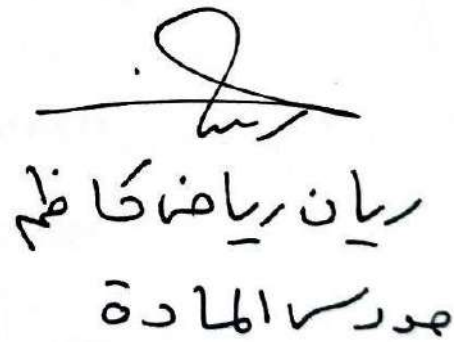 ريان رياض كاظم
مدرس المادة